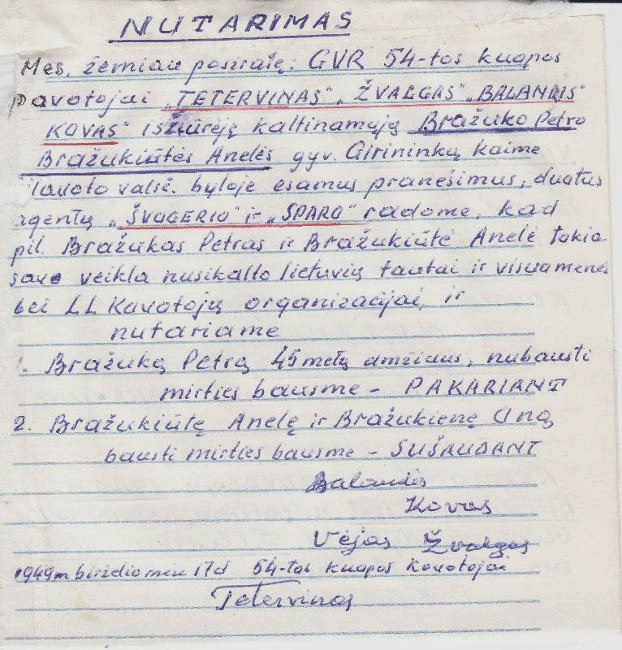 NUTARIMAS
Mes, žemiau pasirašę: GVR 54-tos kuopos
Pavotojai „TETERVINAS", „ŽVALGAS" „BALANDIS"
KOVAS" išžiūrėję kaltinamąją Bražuko Petro
Bražukiūtės Anelės gyv. Girininkų kaime
valsč. byloje esamus pranešimus, duotus
agentų „ŠVOGERIO" ir „SPARO" radome, kad
pil. Bražukas Petras ir Bražukiūtė Anelė tokia
savo veikla nusikalto lietuvių tautai ir visuomenei
bei LL Kovotojų organizacijai, ir
nutariame
1. Bražuką Petrą 45 metų amžiaus, nubausti
mirties bausme - PAKARIANT
2. Bražukiūtę Anelę ir Bražukienę Oną
bausti mirties bausme - SUŠAUDANT
Balandis
Kovas
Vėjas Žvalgas
1949m birželio mėn 17d 54-tos kuopos kovotojai
Tetervinas